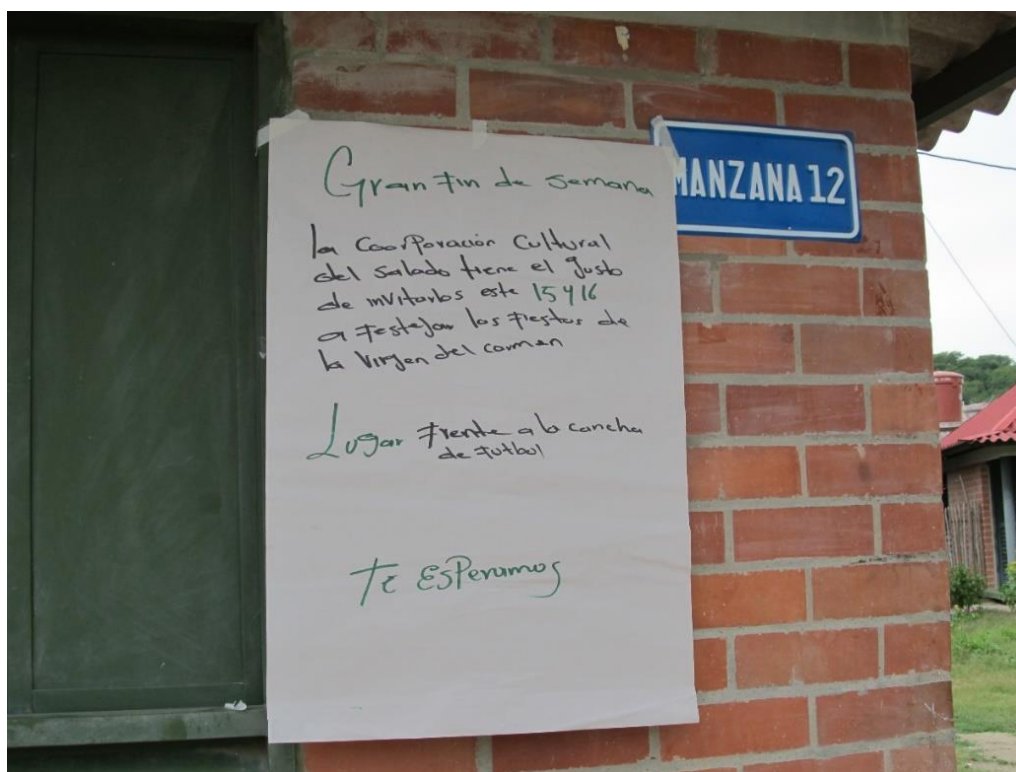 Gran Fin de semana
MANZANA 12
la Coorporación Cultural
del Salado tiene el gusto
de invitarlos este 15 y 16
a Festejar las Fiestas de
la Virgen del carmen
Lugar Frente a la cancha
de Futbol
Te Esperamos